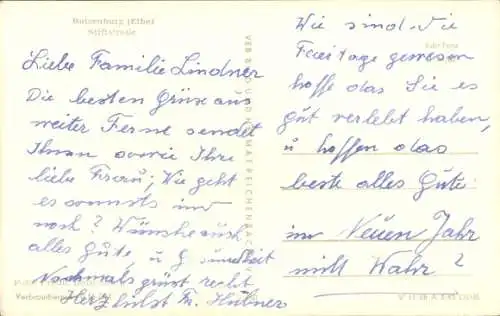 Boizenburg (Elbe)
Stiftstraße
Liebe Familie Lindner
Die besten Grüse aus
weiter Ferne sendet
Ihnen sowie Ihre
liebe Frau; Wie geht
es sonnst
noch? Wünsche auch
alles Gute u Gesundheit
Nochmals grüst recht
Herzlichst Fr. Hübner
VEB BILD UND HEIMAT REICHENBACH
Wie sind die
Feiertage gewesen
hoffe das Sie es
gut verlebt haben,
u hoffen das
beste alles Gute
im Neuen Jahr
nicht Wahr?